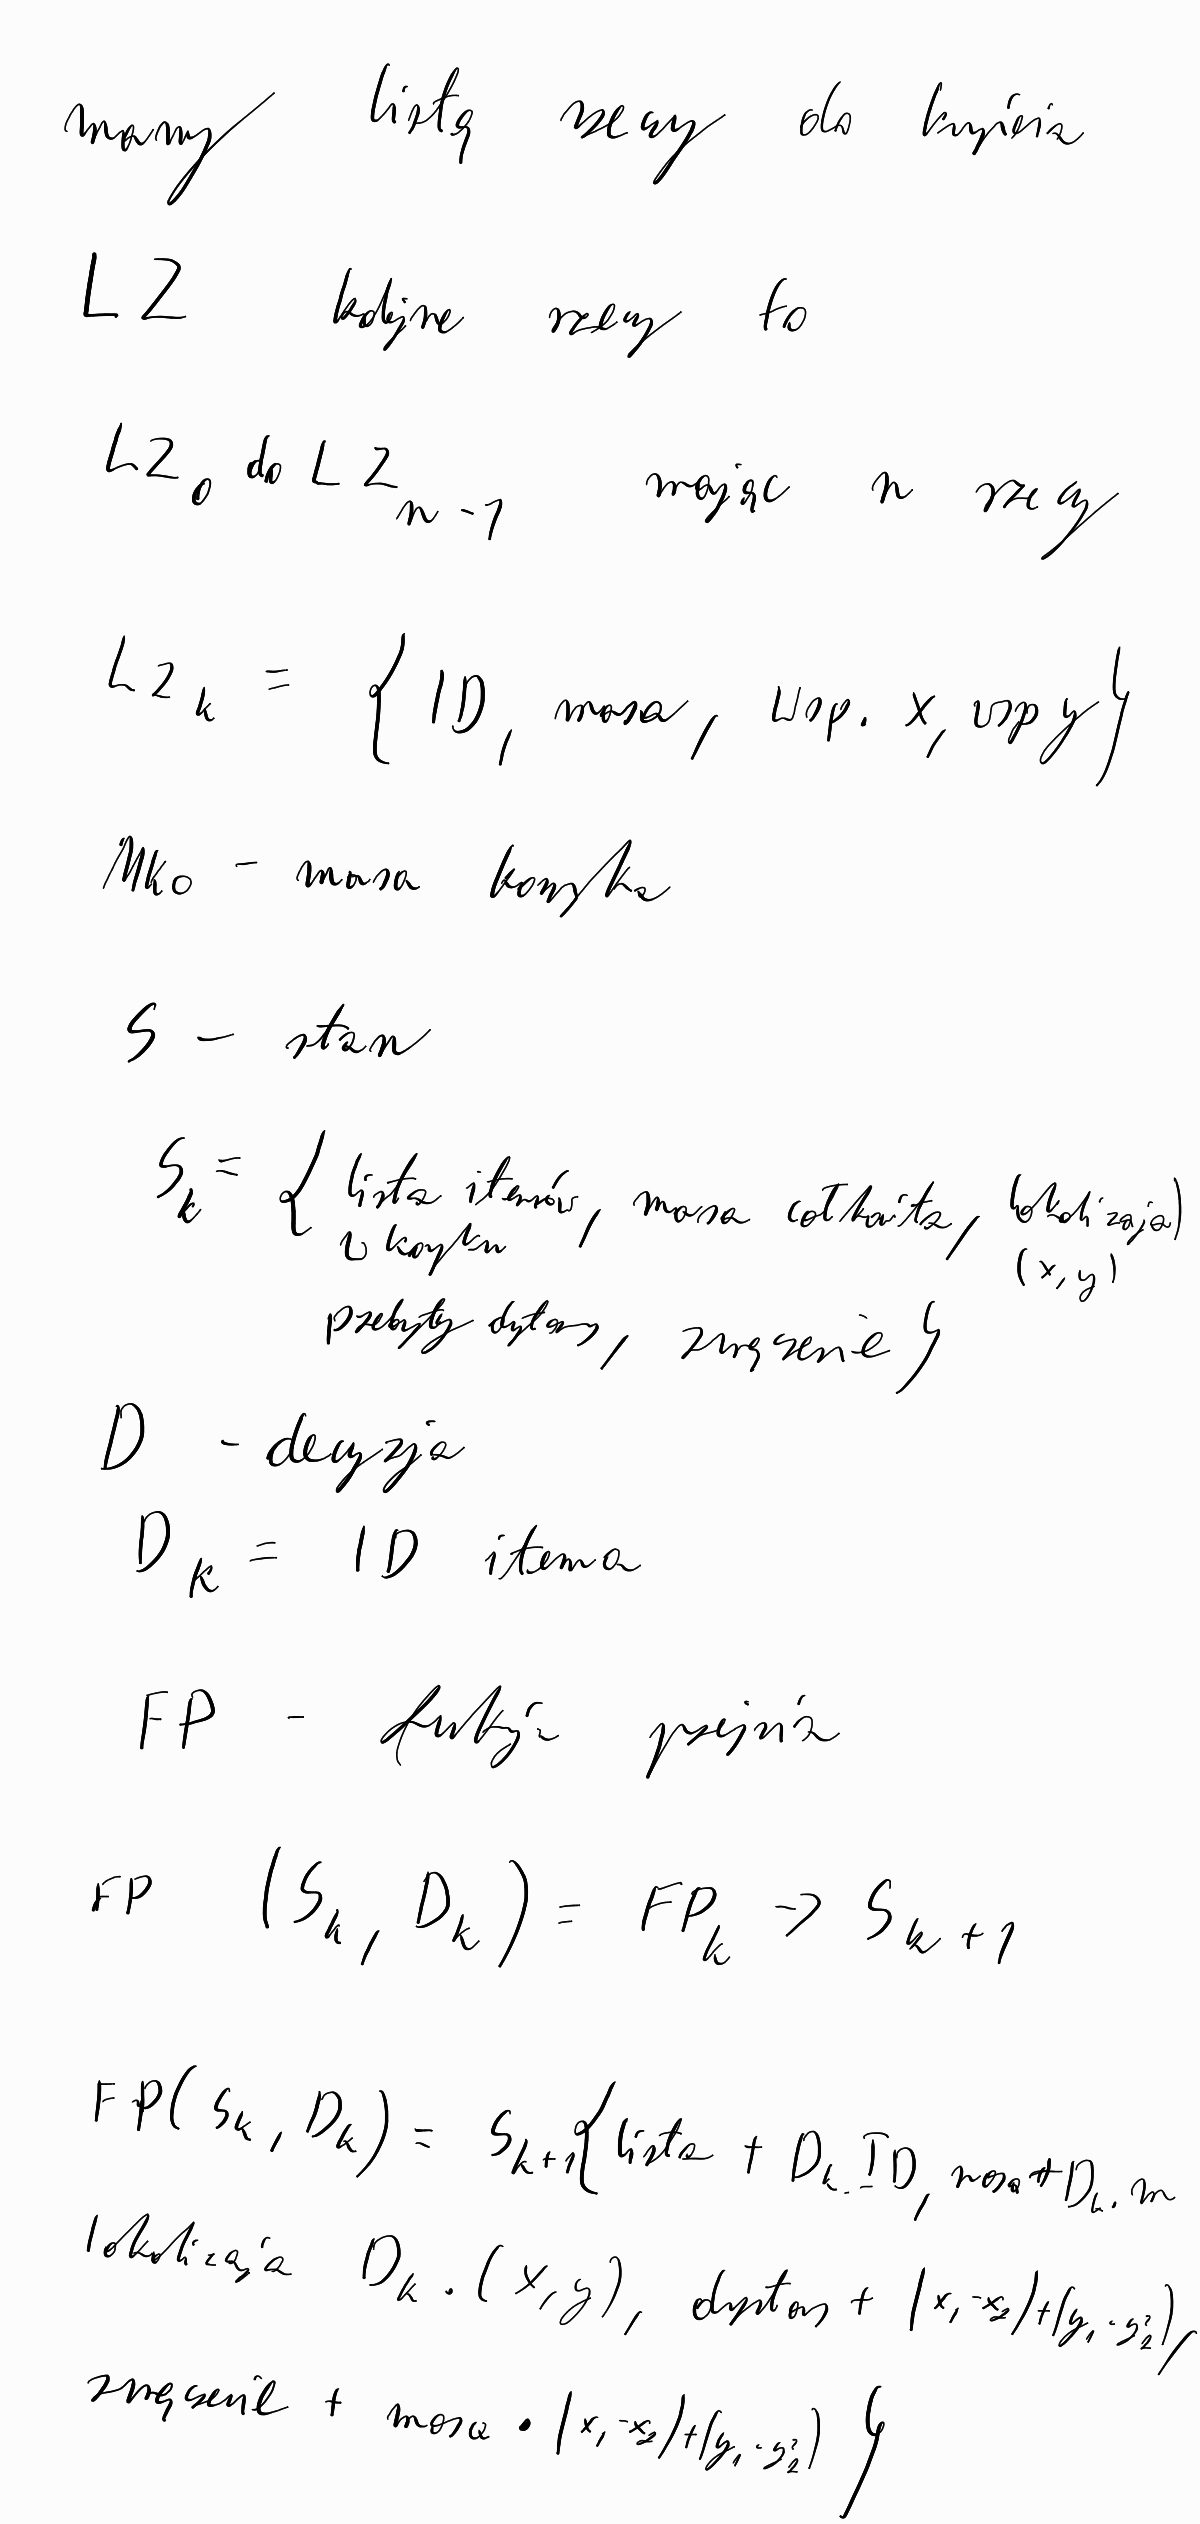 mamy listę rzeczy do kupienia
LZ kolejne rzeczy to
LZ₀ do LZₙ₋₁ mając n rzeczy
LZₖ = { ID, masa, wsp. x, wsp y }
Mko - masa koszyka
S - stan
Sₖ = { lista itemów, masa całkowita, lokalizacja
w koszyku (x, y)
przebyty dystans, zmęczenie }
D - decyzja
Dₖ = ID itema
FP - funkcja przejścia
FP (Sₖ, Dₖ) = FPₖ -> Sₖ₊₁
FP(Sₖ, Dₖ) = Sₖ₊₁{ lista + Dₖ.ID, masa + Dₖ.m
lokalizacja Dₖ.(x, y), dystans + |x₁-x₂|+|y₁-y₂|,
zmęczenie + masa • |x₁-x₂|+|y₁-y₂| }